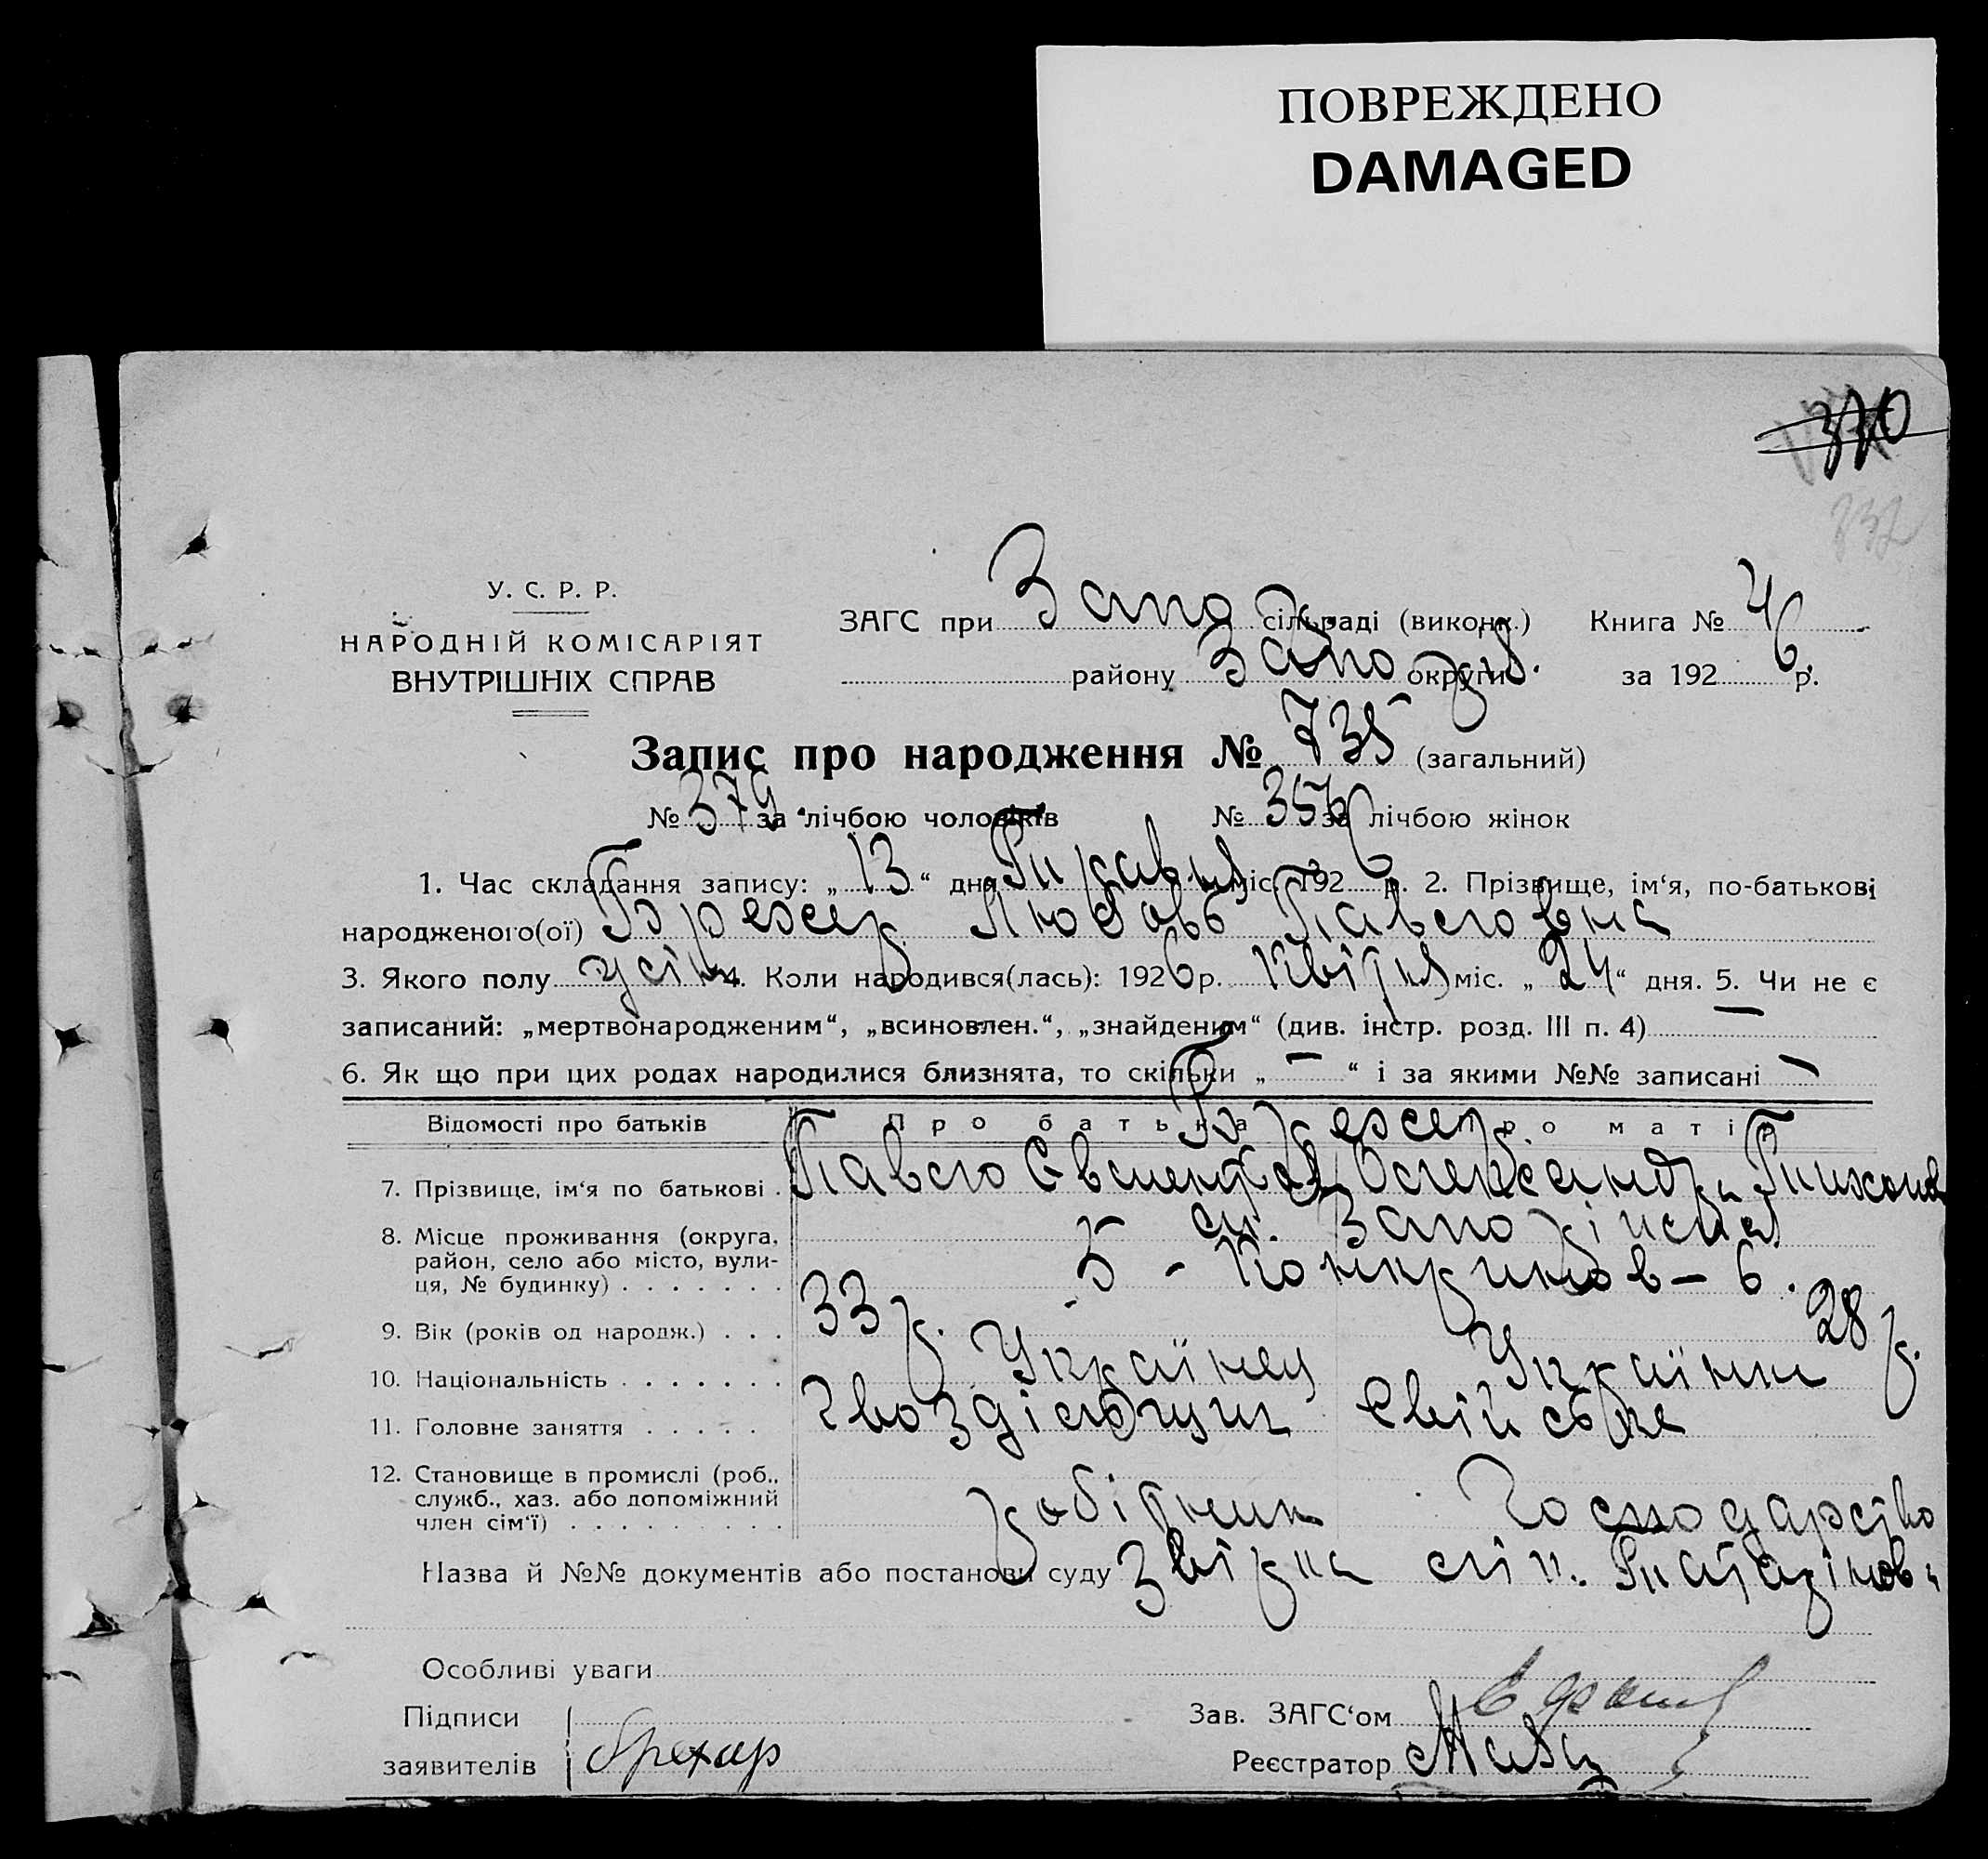 ПОВРЕЖДЕНО
DAMAGED
370
332
У. С. Р. Р.
НАРОДНІЙ КОМІСАРІЯТ
ВНУТРІШНІХ СПРАВ
ЗАГС при Запо сільраді (виконк.) Книга № 4
району Запо округи за 1926 р.
Запис про народження № 735 (загальний)
№ 379 за лічбою чоловіків № 356 за лічбою жінок
1. Час складання запису: „13“ дня Травня міс. 1926 р. 2. Прізвище, ім‘я, по-батькові
народженого(ої) Брехер Любовь Павловна
3. Якого полу 4. Коли народився(лась): 1926 р. Квітня міс. „24“ дня. 5. Чи не є
записаний: „мертвонародженим“, „всиновлен.“, „знайденим“ (див. інстр. розд. III п. 4) —
6. Як що при цих родах народилися близнята, то скільки „—“ і за якими №№ записані —
Відомості про батьків Про батька Про матір
Брехер
7. Прізвище, ім‘я по батькові . Павло Олександра Тихонов
8. Місце проживання (округа, район, село або місто, вулиця, № будинку) . . . . . . . ст. Запоріжжя
5 - - 6.
9. Вік (років од народж.) . . . 33 р. 28 р.
10. Національність . . . . . . . Українец Українка
11. Головне заняття . . . . . Гвоздільщик Свійське
12. Становище в промислі (роб., служб., хаз. або допоміжний член сім‘ї) . . . . . . . . . робітник Господарство
Назва й №№ документів або постанови суду Звірка
Особливі уваги
Підписи Зав. ЗАГС‘ом
заявителів Брехер Реєстратор